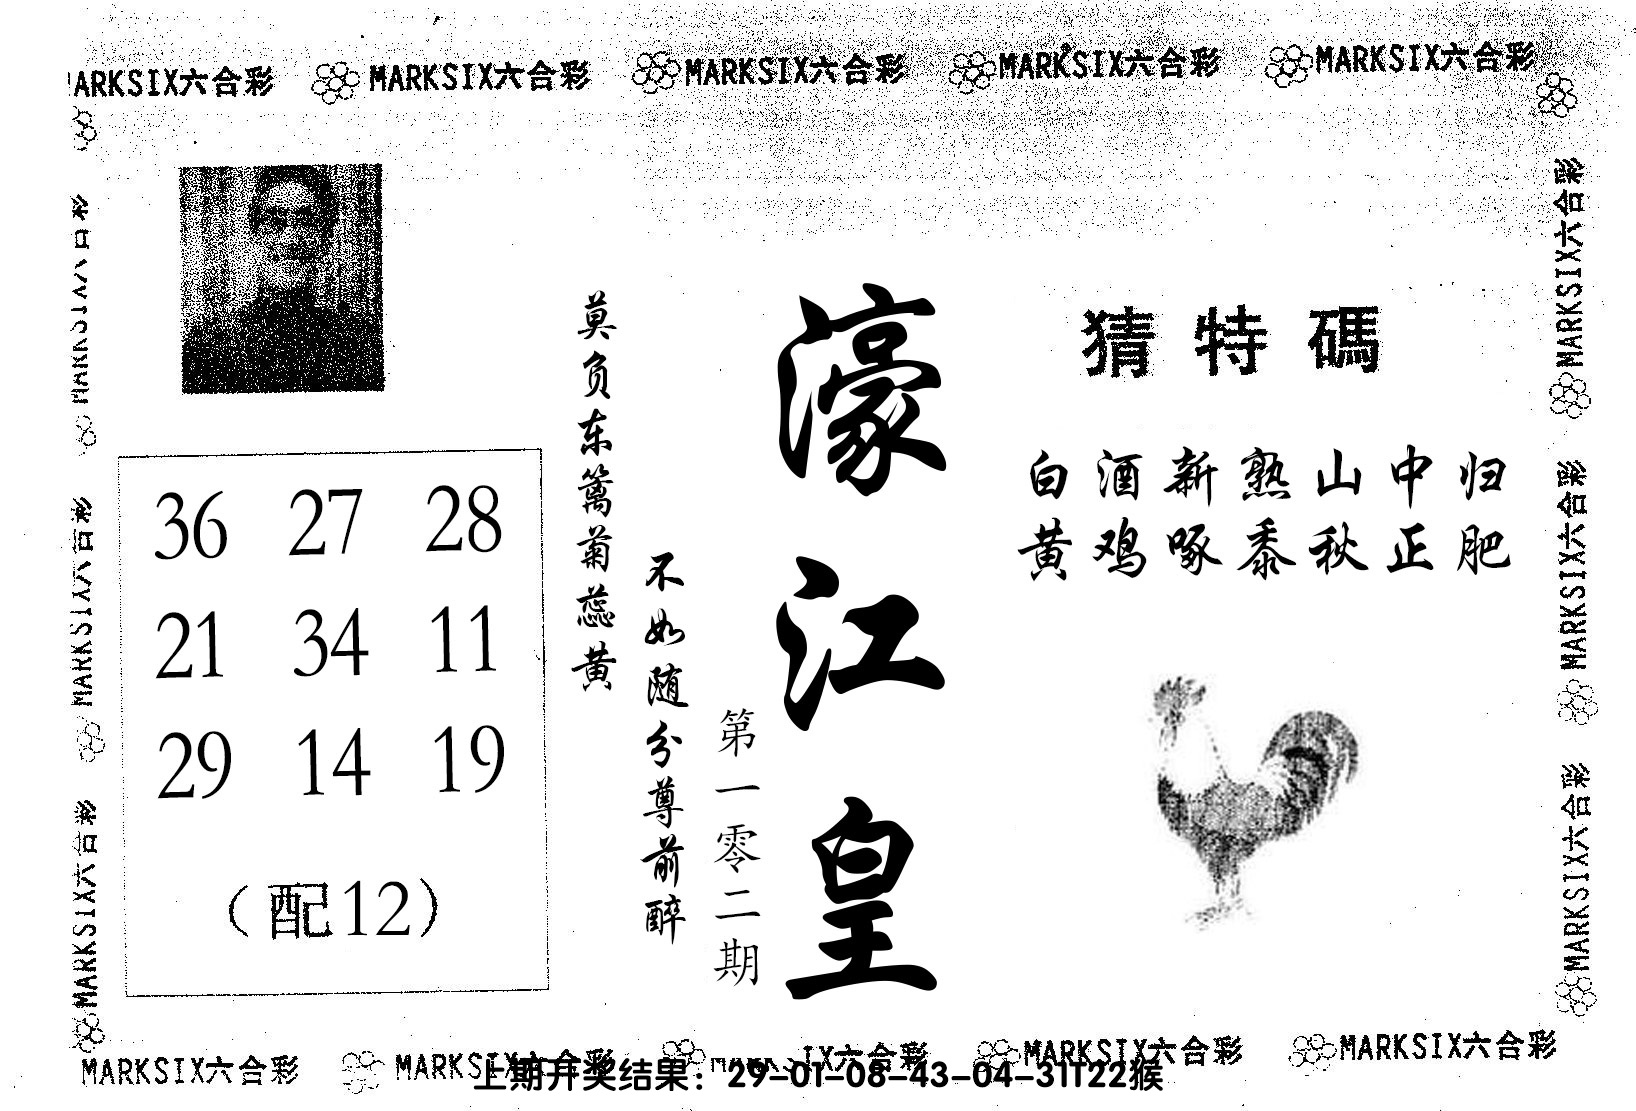 MARKSIX六合彩 MARKSIX六合彩 MARKSIX六合彩 MARKSIX六合彩 MARKSIX六合彩
猜特碼
白酒新熟山中归
黄鸡啄黍秋正肥
濠江皇
第一零二期
莫负东篱菊蕊黄
不如随分尊前醉
36 27 28
21 34 11
29 14 19
（配12）
MARKSIX六合彩
MARKSIX六合彩
MARKSIX六合彩
MARKSIX六合彩
MARKSIX六合彩
MARKSIX六合彩
MARKSIX六合彩 MARKSIX六合彩 MARKSIX六合彩 MARKSIX六合彩
上期开奖结果：29-01-08-43-04-31T22猴